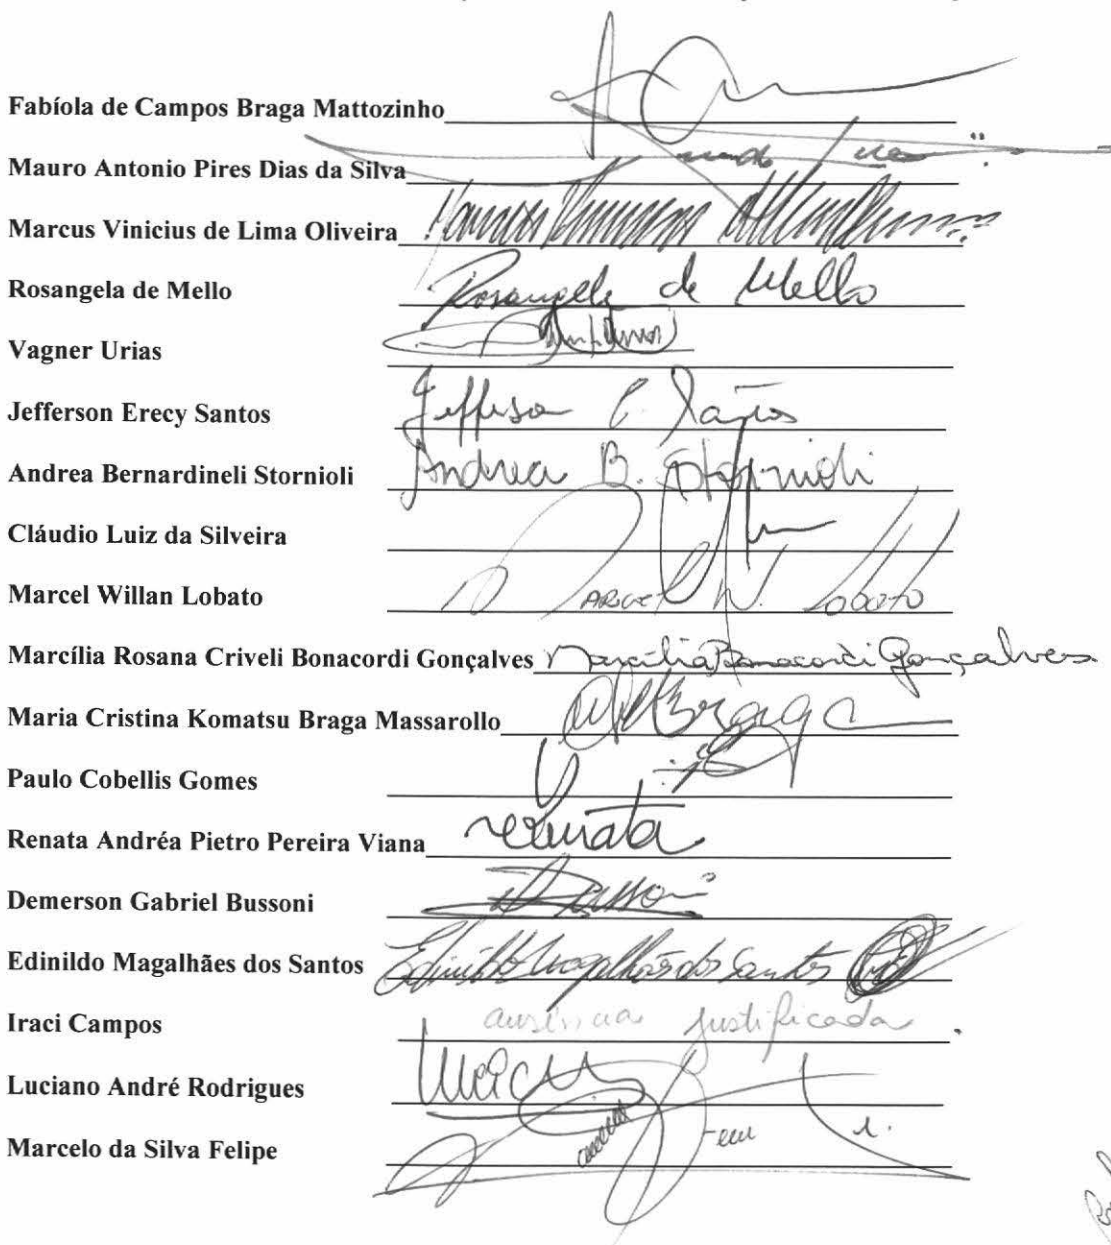 Fabíola de Campos Braga Mattozinho
Mauro Antonio Pires Dias da Silva
Marcus Vinicius de Lima Oliveira
Rosangela de Mello Rosangela de Mello
Vagner Urias
Jefferson Erecy Santos Jefferson E. Santos
Andrea Bernardineli Stornioli Andrea B. Stornioli
Cláudio Luiz da Silveira
Marcel Willan Lobato Marcel W. Lobato
Marcília Rosana Criveli Bonacordi Gonçalves Marcília Bonacordi Gonçalves
Maria Cristina Komatsu Braga Massarollo Braga
Paulo Cobellis Gomes
Renata Andréa Pietro Pereira Viana Renata
Demerson Gabriel Bussoni Bussoni
Edinildo Magalhães dos Santos Edinildo Magalhães dos Santos
Iraci Campos ausência justificada.
Luciano André Rodrigues
Marcelo da Silva Felipe